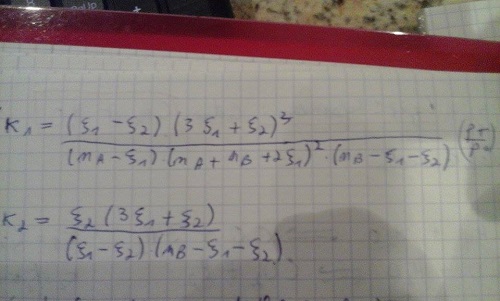 K₁ = (ξ₁ - ξ₂) (3ξ₁ + ξ₂)³ / (nA - ξ₁) · (nA + nB + 2ξ₁)² · (nB - ξ₁ - ξ₂)
K₂ = ξ₂ (3ξ₁ + ξ₂) / (ξ₁ - ξ₂) · (nB - ξ₁ - ξ₂)